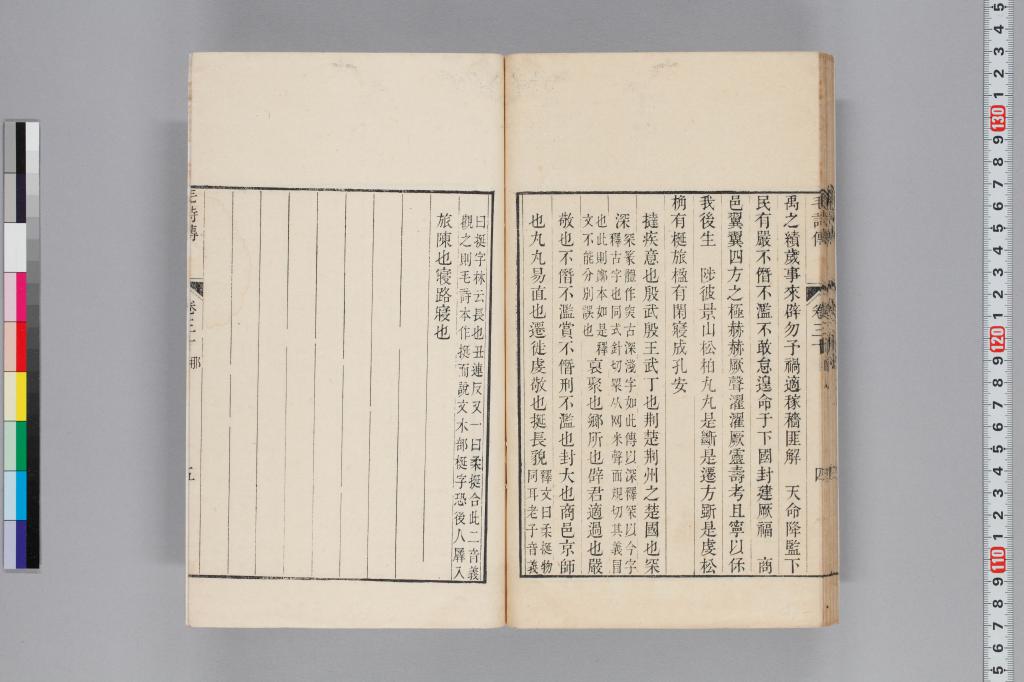 毛詩傳
卷三十
四
禹之績歲事來辟勿予禍適稼穡匪解　天命降監下
民有嚴不僭不濫不敢怠遑命于下國封建厥福　商
邑翼翼四方之極赫赫厥聲濯濯厥靈壽考且寧以保
我後生　陟彼景山松柏丸丸是斷是遷方斲是虔松
桷有梴旅楹有閑寢成孔安
撻疾意也殷武殷王武丁也荆楚荆州之楚國也罙
深罙篆體作突古深淺字如此傳以深釋罙以今字
釋古字也同式針切罙从网米聲而規切其義冒
也此則鄭本如是釋
文不能分別誤也
裒聚也鄉所也辟君適過也嚴
敬也不僭不濫賞不僭刑不濫也封大也商邑京師
也丸丸易直也遷徙虔敬也梴長貌
釋文曰柔梴物
同耳老子音義
曰挻字林云長也丑連反又一曰柔挻合此二音義
觀之則毛詩本作挻而說文木部梴字恐後人羼入
旅陳也寢路寢也
毛詩傳
卷三十　那
五
130
120
110